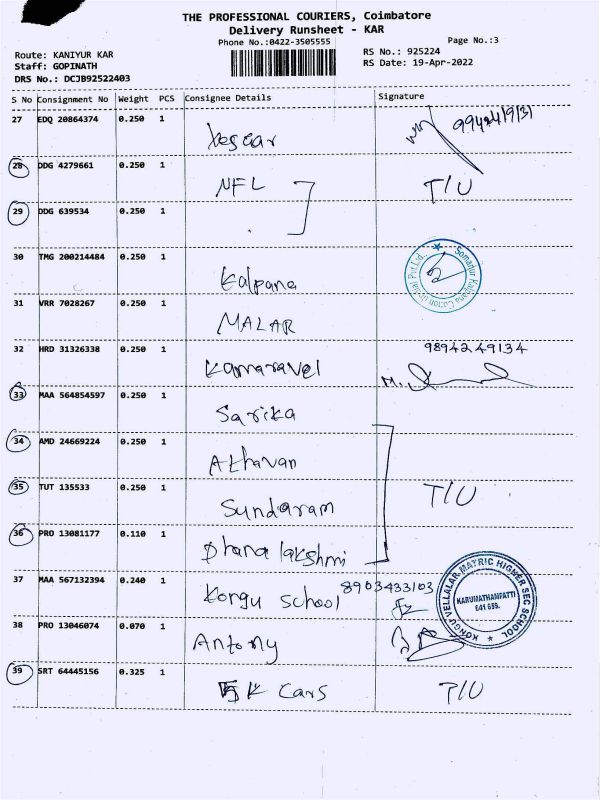 THE PROFESSIONAL COURIERS, Coimbatore
Delivery Runsheet - KAR
Phone No.:0422-3505555
Page No.:3
Route: KANIYUR KAR
RS No.: 925224
Staff: GOPINATH
RS Date: 19-Apr-2022
DRS No.: DCJB92522403
S No Consignment No Weight PCS Consignee Details Signature
27 EDQ 20864374 0.250 1
28 DDG 4279661 0.250 1 NFL T/U
29 DDG 639534 0.250 1
30 TMG 200214484 0.250 1 Kalpana
Somanur Kalpana Cotton (India) Pvt Ltd.
31 VRR 7028267 0.250 1 MALAR
32 HRD 31326338 0.250 1 Kamaravel 9894249134
M.
33 MAA 564854597 0.250 1 Sarika
34 AMD 24669224 0.250 1 Athavan
35 TUT 135533 0.250 1 Sundaram T/U
36 PRO 13081177 0.110 1 Dhana lakshmi
37 MAA 567132394 0.240 1 Kongu School 8903433103
KONGU VELLALAR MATRIC HIGHER SEC SCHOOL
KARUMATHAMPATTI
641 659.
38 PRO 13046074 0.070 1 Antony
39 SRT 64445156 0.325 1 K Cars T/U